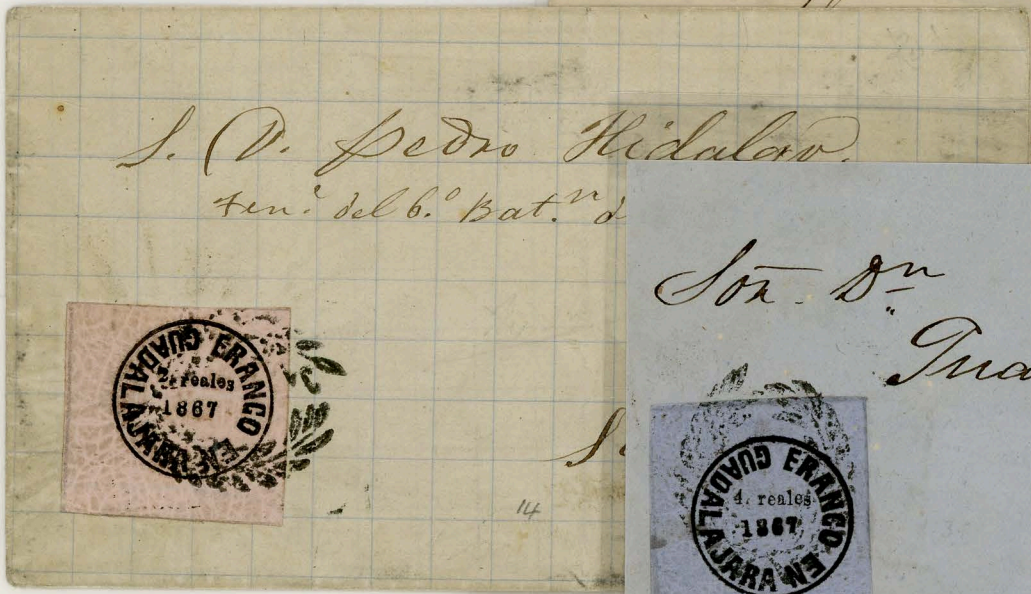 S. D. Pedro Hidalgo.
Ten.^e del 6.º Bat.ⁿ d
FRANCO EN GUADALAJARA
2. reales
1867
14
Sör. Dⁿ
FRANCO EN GUADALAJARA
4. reales
1867